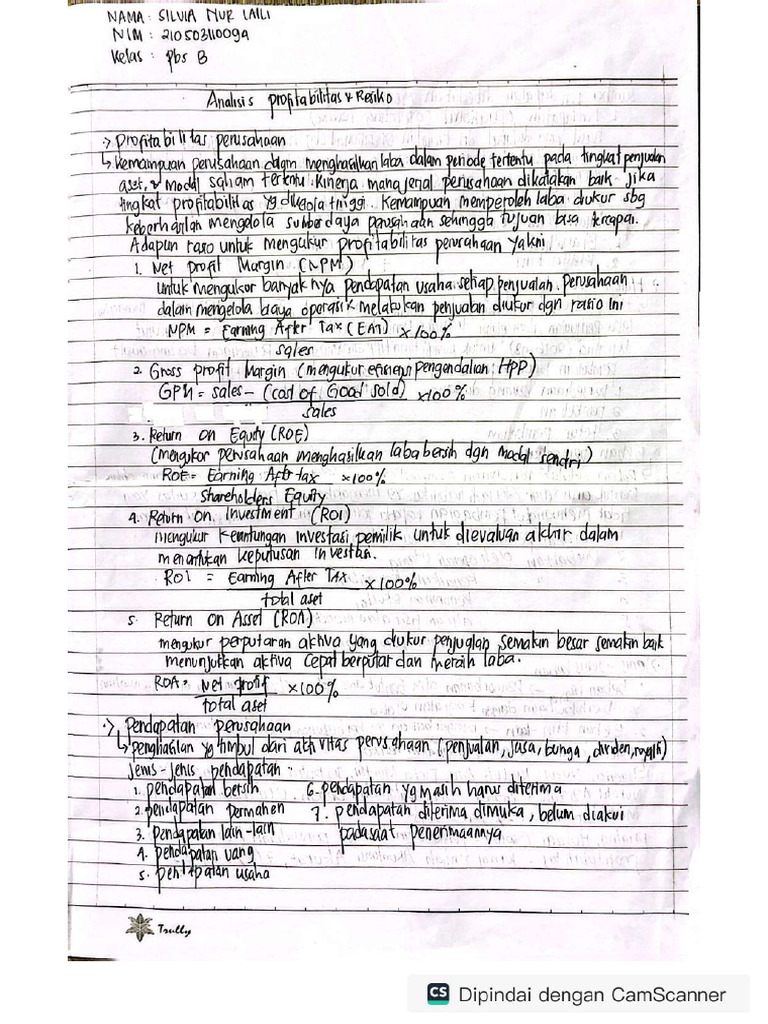 NAMA : SILVIA NUR LAILI
NIM : 210503110092
Kelas : pbs B
Analisis profitabilitas & Resiko
:> Profitabilitas perusahaan
↳ Kemampuan perusahaan dalam menghasilkan laba dalam periode tertentu pada tingkat penjualan
aset, & modal saham tertentu. Kinerja manajerial perusahaan dikatakan baik jika
tingkat profitabilitas yg dikelola tinggi. Kemampuan memperoleh laba diukur sbg
keberhasilan mengelola sumberdaya perusahaan sehingga tujuan bisa tercapai.
Adapun rasio untuk mengukur profitabilitas perusahaan yakni
1. Net Profit Margin (NPM)
untuk mengukur banyaknya pendapatan usaha setiap penjualan. Perusahaan
dalam mengelola biaya operasi & melakukan penjualan diukur dgn rasio ini
NPM = Earning After Tax (EAT) x100%
sales
2. Gross profit Margin (mengukur efisiensi pengendalian HPP)
GPM = sales - (cost of Good sold) x100%
sales
3. Return on Equity (ROE)
(mengukur perusahaan menghasilkan laba bersih dgn modal sendiri)
ROE = Earning Aftr tax x100%
Shareholders Equity
4. Return on Investment (ROI)
mengukur keuntungan investasi pemilik untuk dievaluasi akhir dalam
menentukan keputusan investasi.
ROI = Earning After TAX x100%
total aset
5. Return on Asset (ROA)
mengukur perputaran aktiva yang diukur penjualan semakin besar semakin baik
menunjukan aktiva cepat berputar dan meraih laba.
ROA = Net profit x100%
total aset
:> Pendapatan perusahaan
↳ penghasilan yg timbul dari aktivitas perusahaan (penjualan, jasa, bunga, dividen, royalti)
Jenis-Jenis pendapatan
1. pendapatan bersih 6. pendapatan yg masih harus diterima
2. pendapatan permanen 7. pendapatan diterima dimuka, belum diakui
3. Pendapatan lain-lain padasaat penerimaannya
4. pendapatan uang
5. pendapatan usaha
Trully
CS Dipindai dengan CamScanner